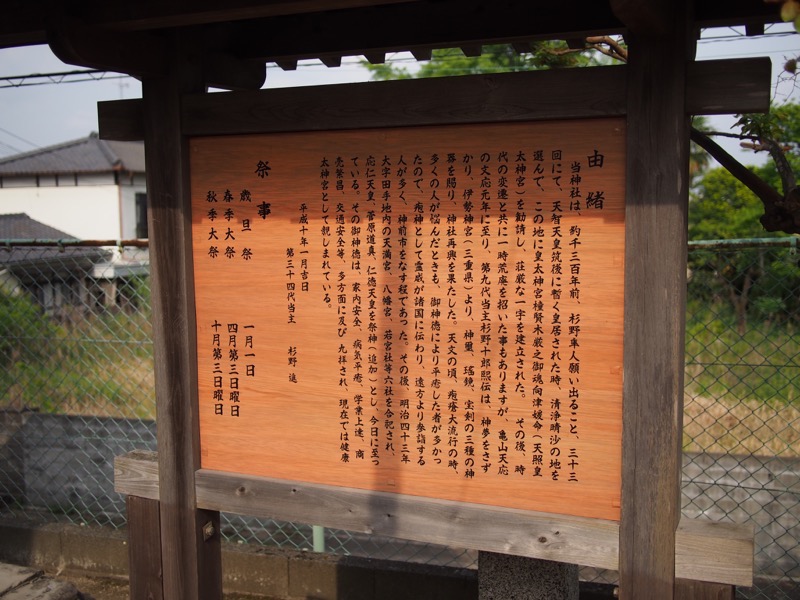 由緒
当神社は、約千三百年前、杉野隼人願い出ること、三十三
回にて、天智天皇筑後に暫く皇居された時、清浄晴沙の地を
選んで、この地に皇太神宮橦賢木厳之御魂向津媛命(天照皇
太神宮)を勧請し、荘厳な一宇を建立された。 その後、時
代の変遷と共に一時荒廃を招いた事もありますが、亀山天応
の文応元年に至り、第九代当主杉野十郎熙伝は、神夢をさず
かり、伊勢神宮(三重県)より、神璽、瑤鏡、宝剣の三種の神
器を賜り、神社再興を果たした。天文の頃、疱瘡大流行の時、
多くの人が悩んだときも、御神徳により平癒した者が多かっ
たので、疱神として霊威が諸国に伝わり、遠方より参詣する
人が多く、神前市をなす程であった。その後、明治四十三年
大字田手地内の天満宮、八幡宮、若宮社等六社を合祀され、
応仁天皇、菅原道真、仁徳天皇を祭神(追加)とし、今日に至っ
ている。その御神徳は、家内安全、病気平癒、学業上達、商
売繁昌、交通安全等、多方面に及び九拝され、現在では健康
太神宮として親しまれている。
平成十年一月吉日
第三十四代当主 杉野
祭事
歳旦祭 一月一日
春季大祭 四月第三日曜日
秋季大祭 十月第三日曜日